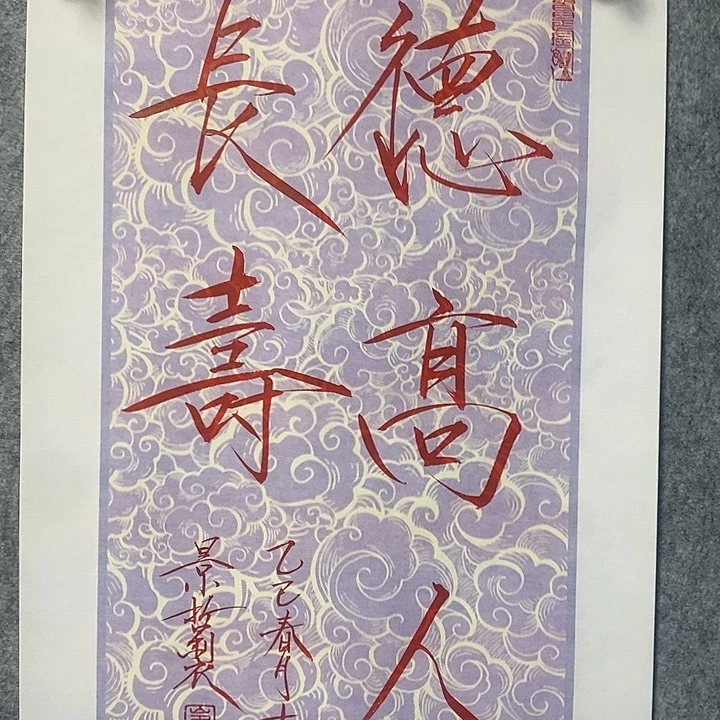 德高人
長壽
乙巳春月
景